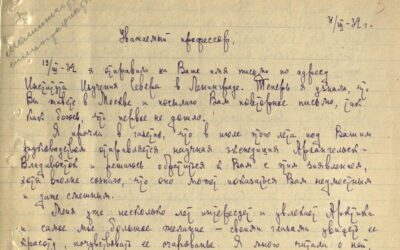 X/III-32 г.
Уважаемый профессор.
19/III-32 я отправила на Ваше имя письмо по адресу
Института Изучения Севера в Ленинграде. Теперь я узнала, что
Вы живете в Москве и посылаю Вам повторное письмо, так
как боюсь, что первое не дошло.
Я прочла в газете, что в июле этого лета под Вашим
руководством отправляется научная экспедиция Архангельск-
Владивосток и решилась обратиться к Вам с этим заявлением,
хотя вполне сознаю, что оно может показаться Вам неуместным
и даже смешным.
Меня уже несколько лет интересует и увлекает Арктика
и самое мое большое желание - своими глазами увидеть ее
красоту, почувствовать ее очарование. Я много читала о ней